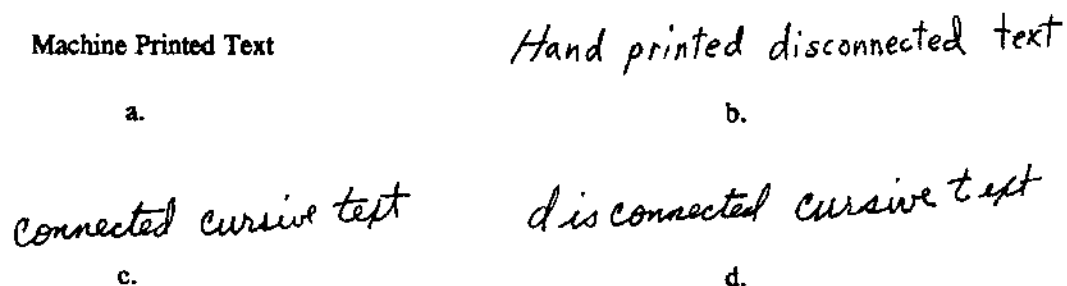 Machine Printed Text
Hand printed disconnected text
a.
b.
connected cursive text
disconnected cursive text
c.
d.